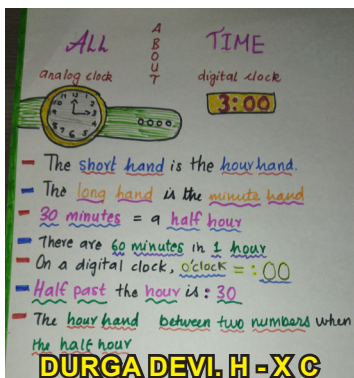 ALL ABOUT TIME
analog clock
digital clock
12 1 2 3 4 5 6 7 8 9 10 11
3:00
The short hand is the hour hand.
The long hand is the minute hand
30 minutes = a half hour
There are 60 minutes in 1 hour
On a digital clock, o'clock = :00
Half past the hour is : 30
The hour hand between two numbers when
the half hour
DURGA DEVI. H - X C